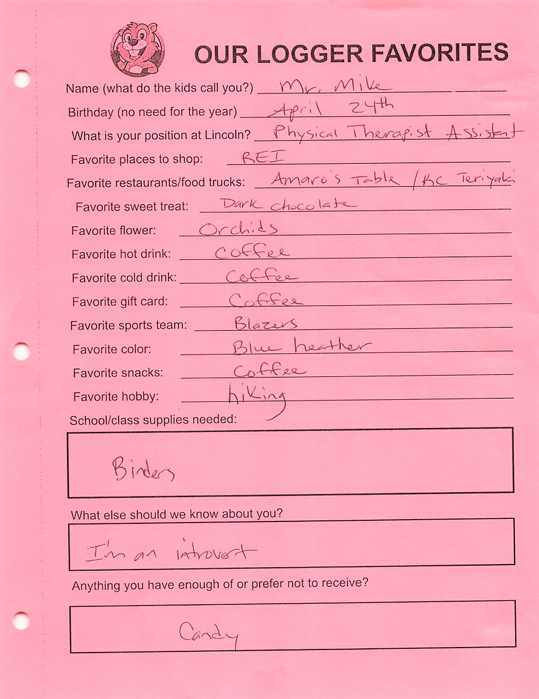 OUR LOGGER FAVORITES
Name (what do the kids call you?) Mr. Mike
Birthday (no need for the year) April 24th
What is your position at Lincoln? Physical Therapist Assistant
Favorite places to shop: REI
Favorite restaurants/food trucks: Amaro's Table / RC Teriyaki
Favorite sweet treat: Dark chocolate
Favorite flower: Orchids
Favorite hot drink: coffee
Favorite cold drink: Coffee
Favorite gift card: Coffee
Favorite sports team: Blazers
Favorite color: Blue heather
Favorite snacks: Coffee
Favorite hobby: hiking
School/class supplies needed:
Binders
What else should we know about you?
I'm an introvert
Anything you have enough of or prefer not to receive?
Candy